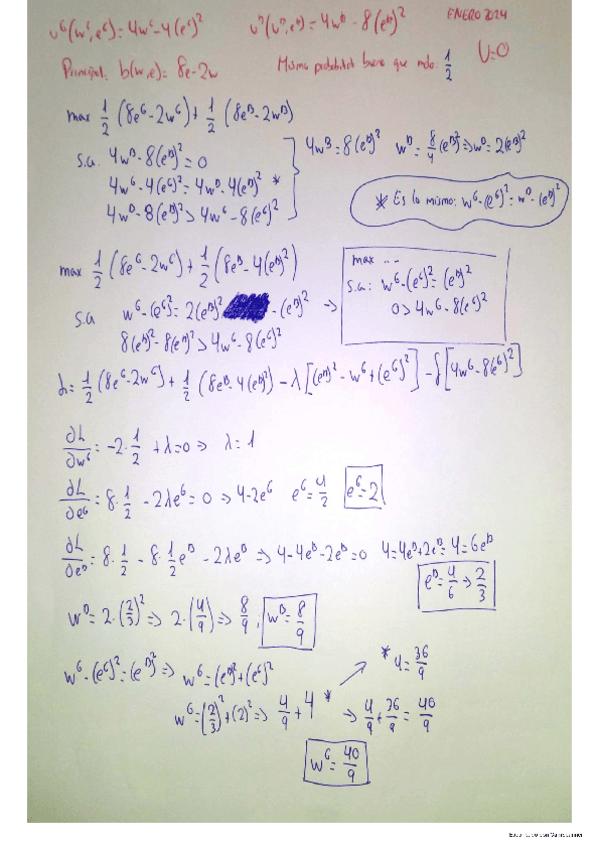 u^G(w^G, e^G) = 4w^G - 4(e^G)^2 u^B(w^B, e^B) = 4w^B - 8(e^B)^2 ENERO 2024
Principal: b(w,e) = 8e - 2w Misma probabilidad bueno que malo: 1/2 U=0
max 1/2 (8e^G - 2w^G) + 1/2 (8e^B - 2w^B)
s.a. 4w^B - 8(e^B)^2 = 0
4w^G - 4(e^G)^2 = 4w^B - 4(e^B)^2 *
4w^B - 8(e^B)^2 > 4w^G - 8(e^G)^2
4w^B = 8(e^B)^2 w^B = 8/4 (e^B)^2 => w^B = 2(e^B)^2
* Es lo mismo: w^G - (e^G)^2 = w^B - (e^B)^2
max 1/2 (8e^G - 2w^G) + 1/2 (8e^B - 4(e^B)^2)
s.a w^G - (e^G)^2 = 2(e^B)^2 - (e^B)^2 ->
8(e^B)^2 - 8(e^B)^2 > 4w^G - 8(e^G)^2
max ...
s.a: w^G - (e^G)^2 = (e^B)^2
0 > 4w^G - 8(e^G)^2
L = 1/2 (8e^G - 2w^G) + 1/2 (8e^B - 4(e^B)^2) - λ[(e^B)^2 - w^G + (e^G)^2] - δ[4w^G - 8(e^G)^2]
∂L/∂w^G = -2·1/2 + λ = 0 => λ = 1
∂L/∂e^G = 8·1/2 - 2λe^G = 0 => 4 - 2e^G e^G = 4/2 e^G = 2
∂L/∂e^B = 8·1/2 - 8·1/2 e^B - 2λe^B => 4 - 4e^B - 2e^B = 0 4 = 4e^B + 2e^B = 4 = 6e^B
e^B = 4/6 -> 2/3
w^B = 2·(2/3)^2 => 2·(4/9) => 8/9, w^B = 8/9
w^G - (e^G)^2 = (e^B)^2 => w^G = (e^B)^2 + (e^G)^2
* 4 = 36/9
w^G = (2/3)^2 + (2)^2 => 4/9 + 4 * -> 4/9 + 36/9 = 40/9
w^G = 40/9